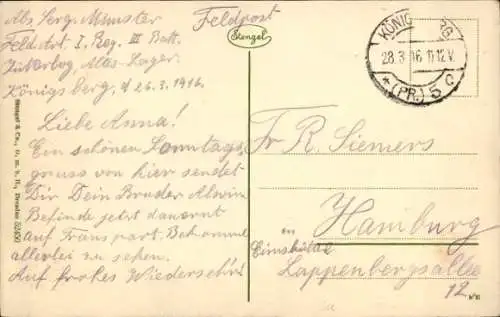 Abs. Serg. Münster
Feld Art. I. Reg. III Batt.
Jüterbog Altes Lager.
Königsberg, d 26.3.1916.
Feldpost
Stengel
KÖNIGSBERG
28.3.16 11-12V.
* (PR.) 5 c
Liebe Anna!
Ein schönen Sonntags,
gruss von hier sendet
Dir Dein Bruder Alwin
Befinde jetzt dauernt
auf Transport. Bekomme
allerlei zu sehen.
Auf frohes Wiederseh'n!
Fr R. Siemers
in Hamburg
Eimsbüttel
Lappenbergsallee
12.
Stengel & Co., G. m. b. H., Dresden 52490